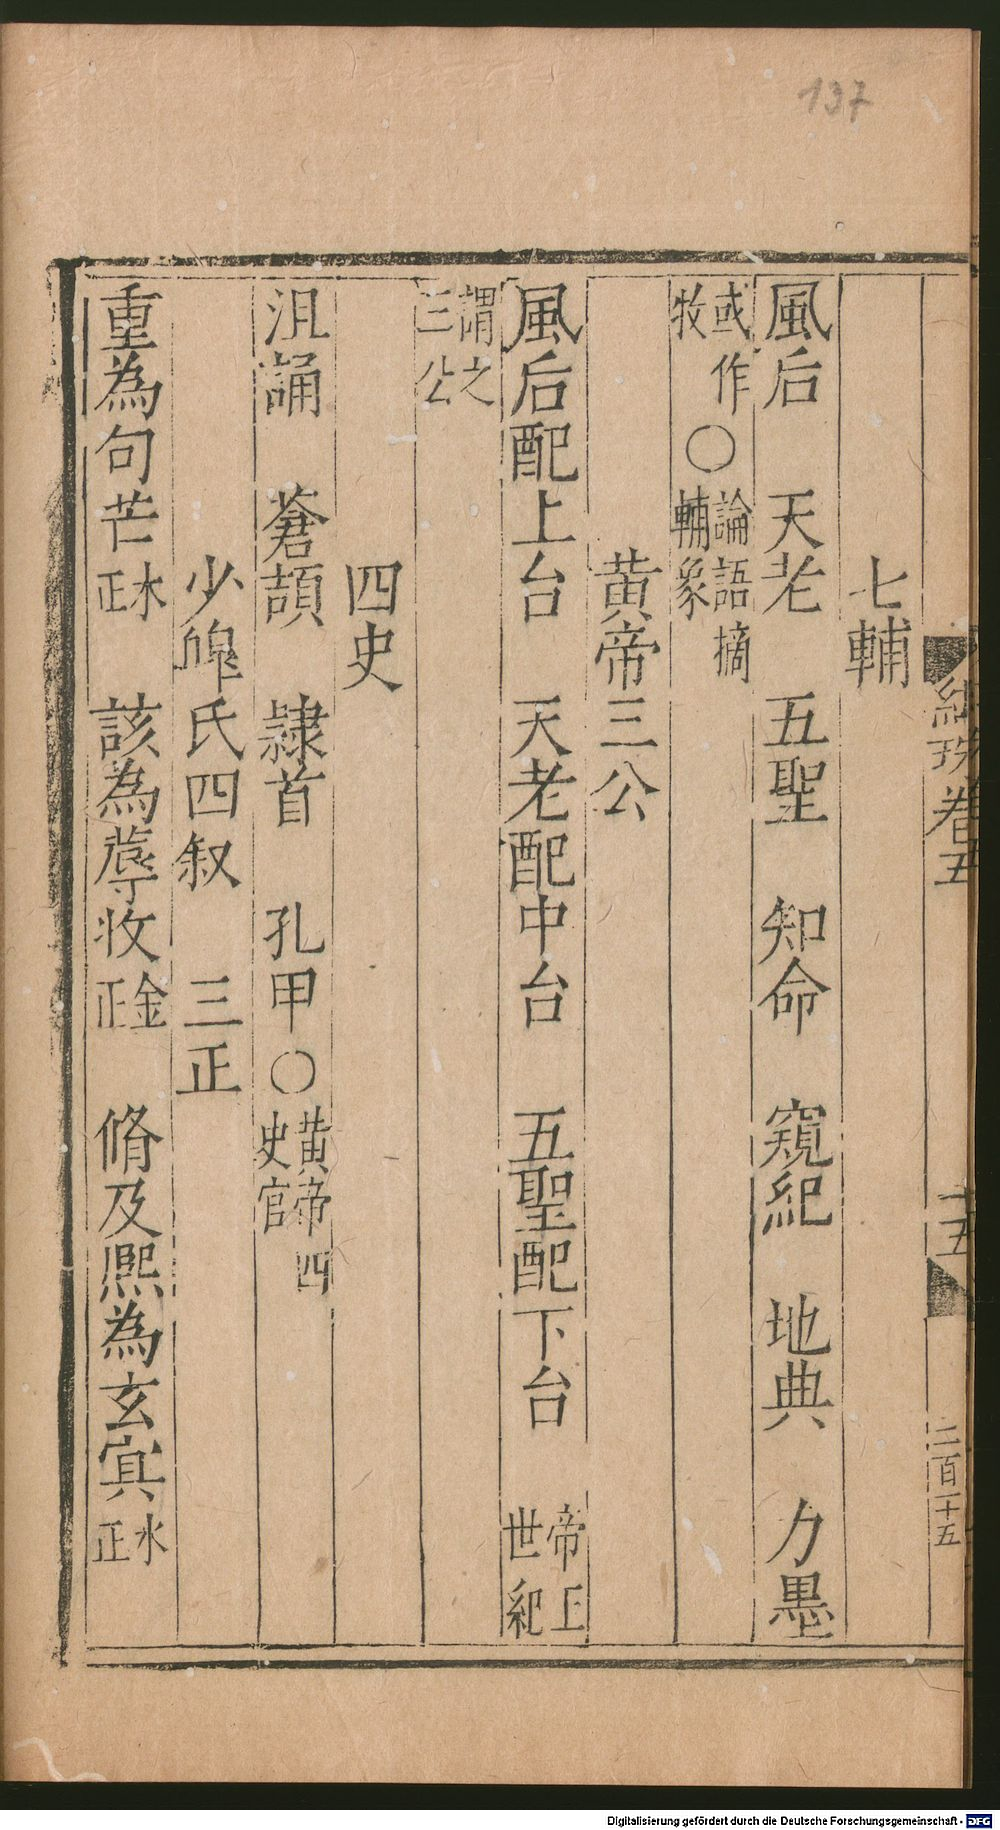 137
紺珠卷五
十五
二百十五
七輔
風后　天老　五聖　知命　窺紀　地典　力墨
或作
牧
○
論語摘
輔象
黄帝三公
風后配上台　天老配中台　五聖配下台
帝王
世紀
謂之
三公
四史
沮誦　蒼頡　隷首　孔甲○
黄帝四
史官
少皥氏四叙　三正
重為句芒
木
正
該為蓐收
金
正
脩及熈為玄㝠
水
正
Digitalisierung gefördert durch die Deutsche Forschungsgemeinschaft - DFG